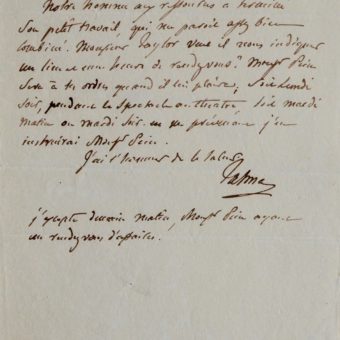 Notre homme aux ressources a terminé
son petit travail, qui me paroit assez bien
combiné. Monsieur Taylor veut il nous indiquer
un lieu et une heure de rendez vous? Monsr
sera à ses ordres quand il lui plaira, soit lundi
soir, pendant le spectacle au théatre, soit mardi
matin ou mardi soir. en me prévenant j'en
instruirai Monsr
J'ai l'honneur de le saluer
Talma
j'excepte demain matin, Monsr ayant
un rendez vous d'affaires.